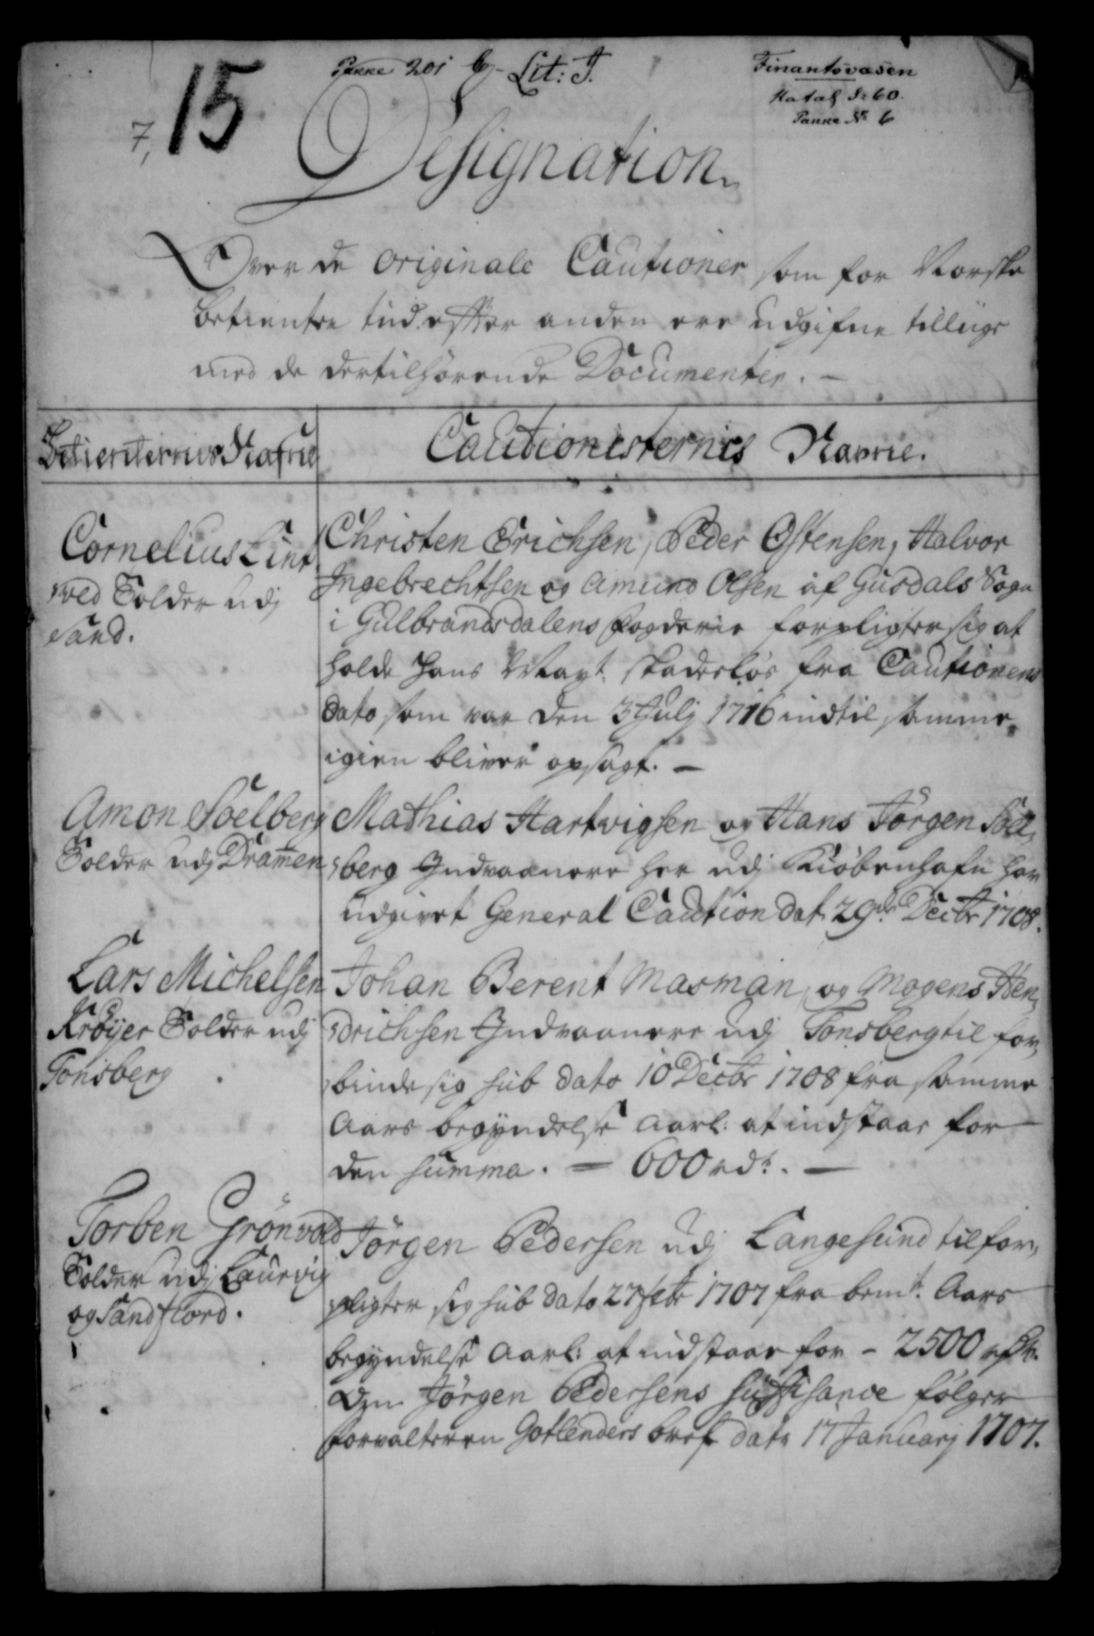 Pakke 201 6 Lit: J.
Finantsvæsen
Katal 8: 60.
Pakke No 6
7, 15
Designation
Over de originale Cautioner som for Norske
betientere tid efter anden ere udgifne tillige
med de dertilhörende Documenter. –
Betienternis Nafne
Cautionisternis Navne.
Cornelius Lint
sved Tolder udj
Sand.
Christen Erichsen, Peder Ostensen, Halvor
Ingebrechtsen og Amund Olsen af Gusdals Sogn
i Gulbrandsdalens fogderie forpligter sig at
holde hans Mayt. skadeslös fra Cautionens
dato som var den 3 Julj 1716 indtil samme
igien bliver opsagt. –
Amon Soelberg
Tolder udj Dramen
Mathias Hartvigsen og Hans Jörgen Soel,
berg Indvaanere her udj Kiöbenhafn har
udgivet General Caution dat. 29de Decbr 1708.
Lars Michelsen
Kröyer Tolder udj
Tönsberg
Johan Berent Masman og Mogens Hen,
drichsen Indvaanere udj Tonsberg til for,
binde sig sub dato 10 Decbr 1708 fra samme
Aars begyndelse aarl: at indstaae for
den summa. – 600 rdr. –
Torben Grönvold
Tolder udj Laurvig
og Sandfiord.
Jörgen Pedersen udj Langesund tilfor,
pligter sig sub dato 27 febr 1707 fra bemt. Aars
begyndelse aarl: at indstaae for – 2500 rdr.
Om Jörgen Pedersens suffisance fölger
forvalteren Gotlenders bref dat. 17 Januarj 1707.